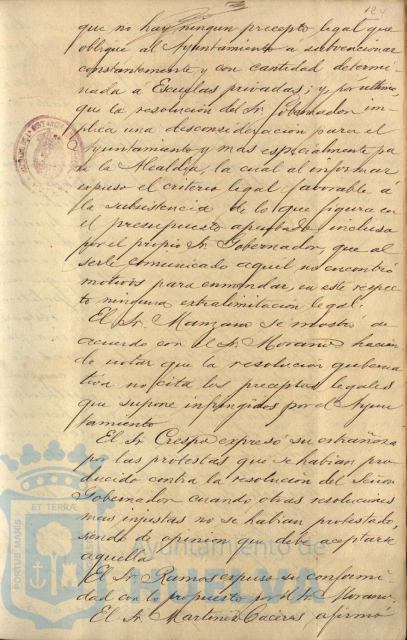 124
que no hay ningun precepto legal que
obligue al Ayuntamiento a subvencionar
constantemente y con cantidad determi-
nada a Escuelas privadas; y por ultimo
que la resolucion del Sr. Gobernador im-
plica una desconsideración para el
Ayuntamiento y mas especialmente pa-
ra la Alcaldia, la cual al informar
expuso el criterio legal favorable á
la subsistencia de lo que figura en
el presupuesto aprobado inclusa
por el propio Sr. Gobernador, que al
serle comunicado aquel no encontró
motivos para enmendar, en este respec-
to ninguna extralimitacion legal.
El Sr. Manzano se mostró de
acuerdo con el Sr. Morano hacien-
do notar que la resolución guberna-
tiva no cita los preceptos legales
que supone infringidos por el Ayun-
tamiento
El Sr. Crespo expresó su extrañeza
por las protestas que se habian pro-
ducido contra la resolución del Señor
Gobernador cuando otras resoluciones
mas injustas no se habian protestado,
siendo de opinion que debe aceptarse
aquella
El Sr. Ramos expuso su conformi-
dad con lo propuesto por el Sr. Morano.
El Sr. Martinez Caceres afirmó
PORTUS MARIS ET TERRÆ
Ayuntamiento de
HUELVA